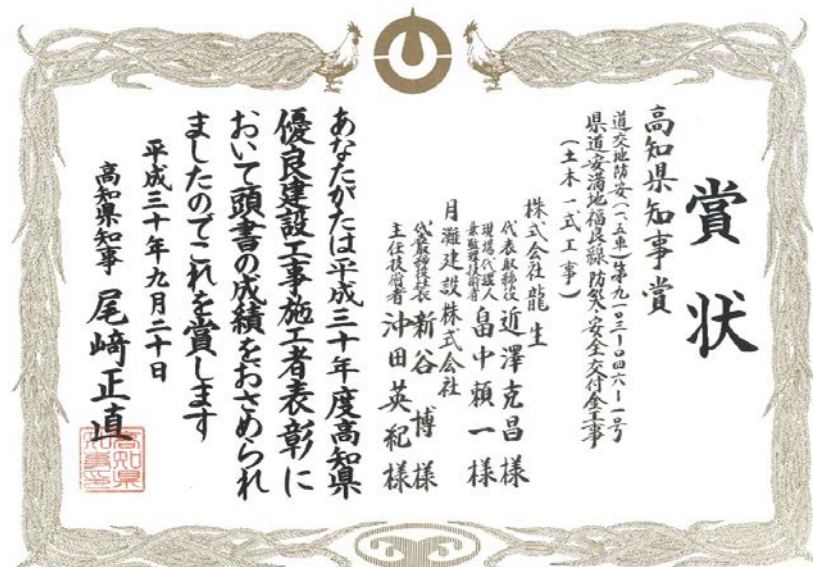 賞状
高知県知事賞
道交地防安(一、五車)第九一〇三ー〇四六ー一号
県道安満地福良線防災・安全交付金工事
(土木一式工事)
株式会社龍生
代表取締役 近澤克昌様
現場代理人
兼監理技術者 畠中頼一様
月灘建設株式会社
代表取締役社長 新谷博様
主任技術者 沖田英紀様
あなたがたは平成三十年度高知県
優良建設工事施工者表彰に
おいて頭書の成績をおさめられ
ましたのでこれを賞します
平成三十年九月二十日
高知県知事 尾﨑正直
高知県
知事印